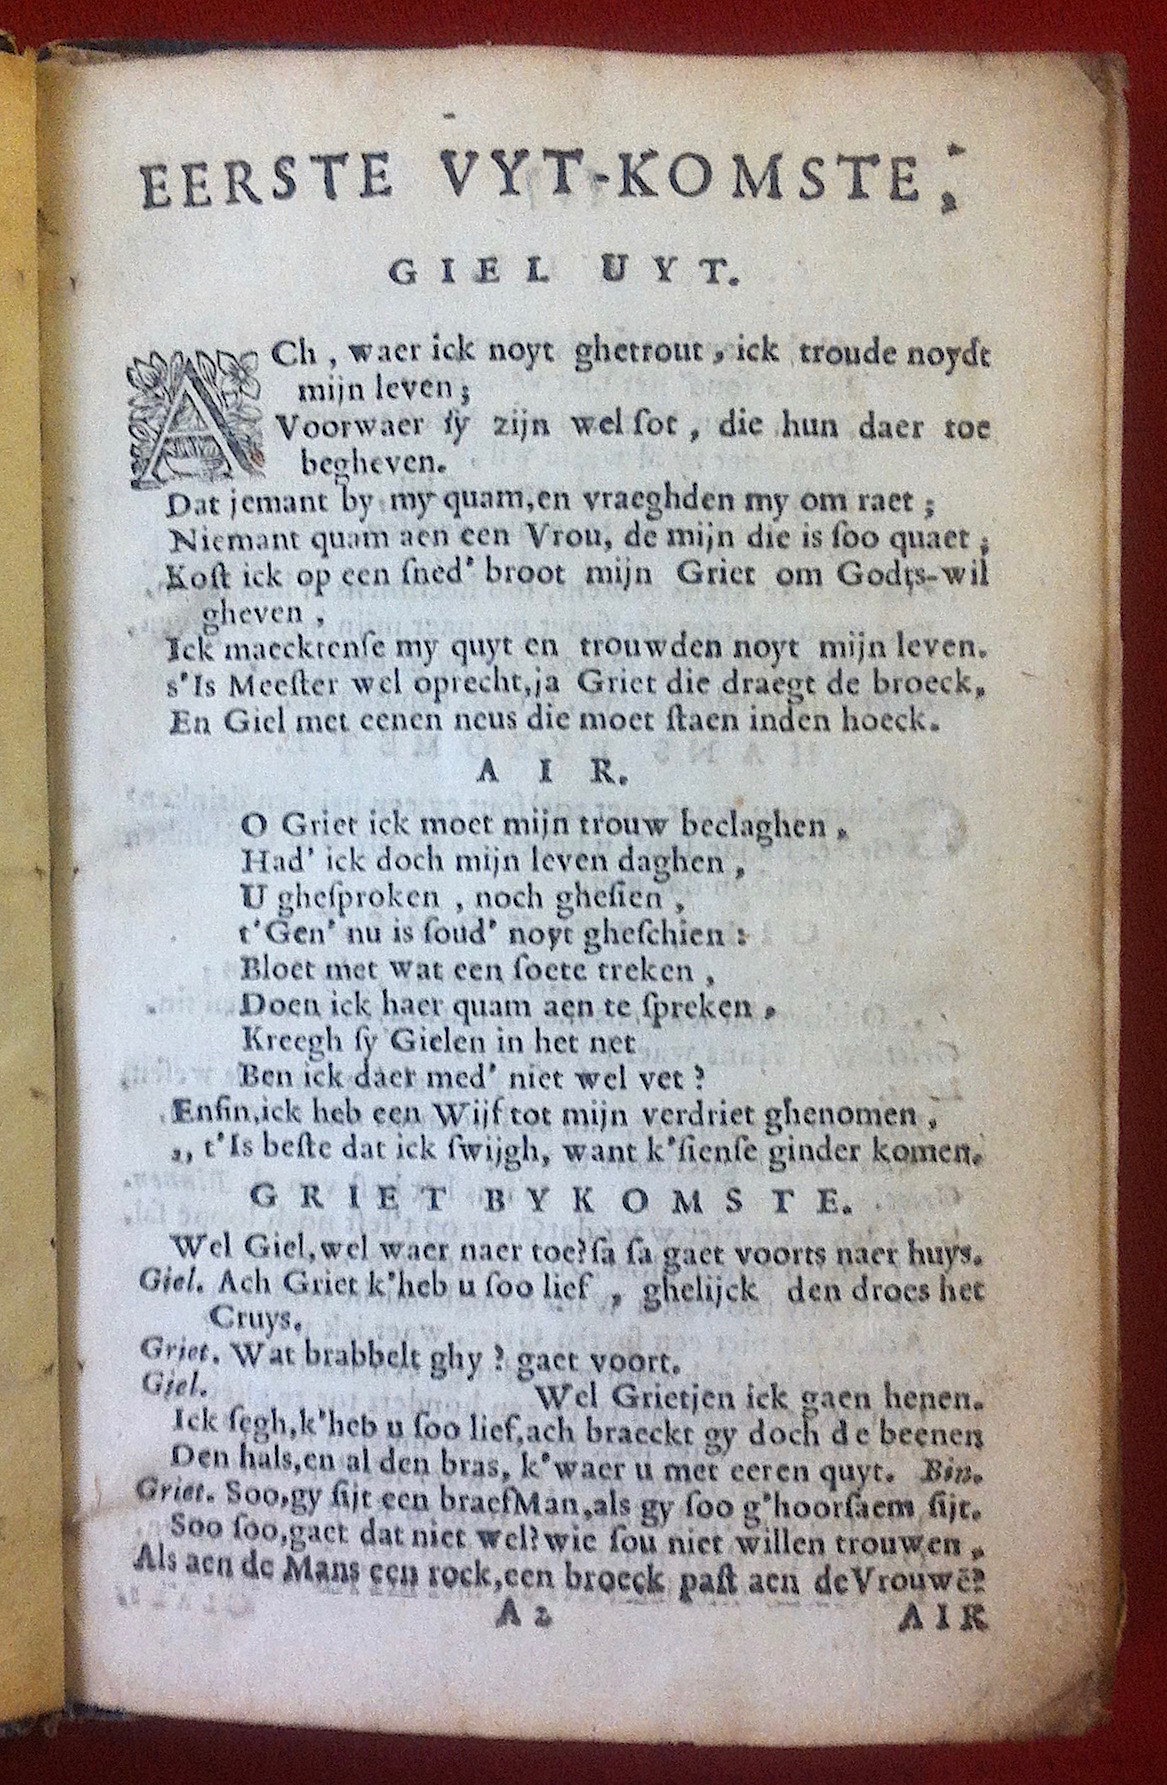 EERSTE VYT-KOMSTE,
GIEL UYT.
ACh, waer ick noyt ghetrout, ick troude noydt
mijn leven;
Voorwaer ſy zijn wel ſot, die hun daer toe
begheven.
Dat jemant by my quam,en vraeghden my om raet;
Niemant quam aen een Vrou, de mijn die is ſoo quaet;
Koſt ick op een ſned' broot mijn Griet om Godts-wil
gheven,
Ick maecktenſe my quyt en trouwden noyt mijn leven.
s'Is Meeſter wel oprecht,ja Griet die draegt de broeck,
En Giel met eenen neus die moet ſtaen inden hoeck.
AIR.
O Griet ick moet mijn trouw beclaghen,
Had' ick doch mijn leven daghen,
U gheſproken, noch gheſien,
t'Gen' nu is ſoud' noyt gheſchien:
Bloet met wat een ſoete treken,
Doen ick haer quam aen te ſpreken,
Kreegh ſy Gielen in het net
Ben ick daer med' niet wel vet?
Enfin,ick heb een Wijf tot mijn verdriet ghenomen,
,, t'Is beſte dat ick ſwijgh, want k'ſienſe ginder komen.
GRIET BYKOMSTE.
Wel Giel,wel waer naer toe?ſa ſa gaet voorts naer huys.
Giel. Ach Griet k'heb u ſoo lief, ghelijck den droes het
Cruys.
Griet. Wat brabbelt ghy? gaet voort.
Giel. Wel Grietjen ick gaen henen.
Ick ſegh,k'heb u ſoo lief,ach braeckt gy doch de beenen
Den hals,en al den bras, k'waer u met eeren quyt. Bin.
Griet. Soo,gy ſijt een braefMan,als gy ſoo g'hoorſaem ſijt.
Soo ſoo,gaet dat niet wel?wie ſou niet willen trouwen,
Als aen de Mans een rock,een broeck paſt aen deVrouwē?
A2
AIR